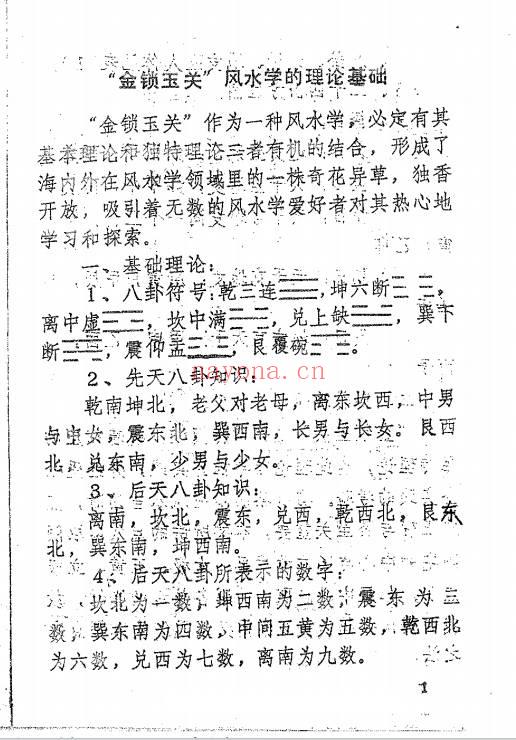 “金锁玉关”风水学的理论基础
“金锁玉关”作为一种风水学，必定有其
基本理论和独特理论二者有机的结合，形成了
海内外在风水学领域里的一株奇花异草，独香
开放，吸引着无数的风水学爱好者对其热心地
学习和探索。
一、基础理论：
1、八卦符号：乾三连☰，坤六断☷，
离中虚☲，坎中满☵，兑上缺☱，巽下
断☴，震仰盂☳，艮覆碗☶。
nayona.cn
2、先天八卦知识：
乾南坤北，老父对老母，离东坎西，中男
与女，震东北，巽西南，长男与长女。艮西
北，兑东南，少男与少女。
3、后天八卦知识：
离南，坎北，震东，兑西，乾西北，艮东
北，巽东南，坤西南。
4、后天八卦所表示的数字：
坎北为一数，坤西南为二数，震东为三
数，巽东南为四数，中间五黄为五数，乾西北
为六数，兑西为七数，离南为九数。
1